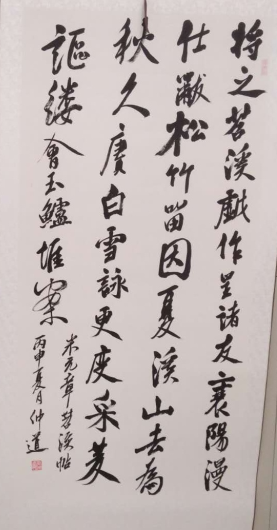 将之苕溪戲作呈諸友襄陽漫
仕獻松竹留因夏溪山去為
秋久賡白雪詠更度采菱
謳縷會玉鱸堆案
米元章苕溪帖
丙申夏月仲道